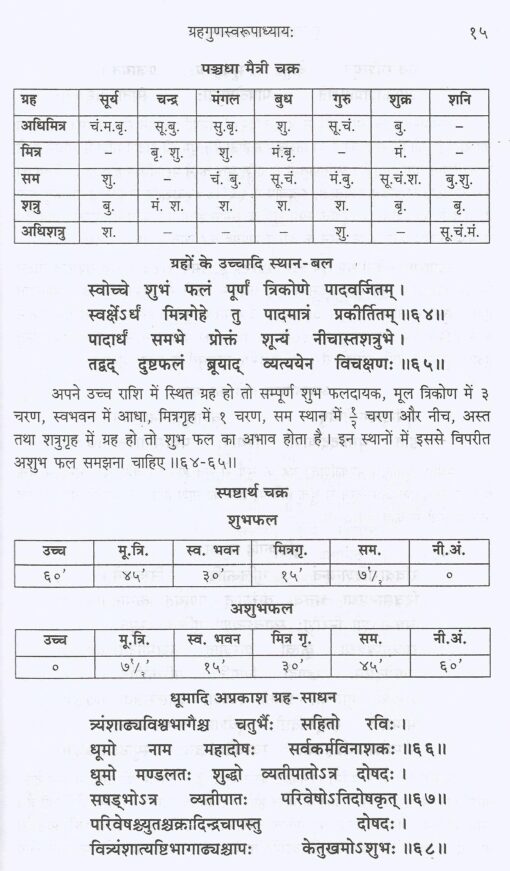 ग्रहगुणस्वरूपाध्यायः १५
पञ्चधा मैत्री चक्र
ग्रह सूर्य चन्द्र मंगल बुध गुरु शुक्र शनि
अधिमित्र चं.म.बृ. सू.बु. सु.बृ. शु. सू.चं. बु. –
मित्र – बृ. शु. शु. मं.बृ. – मं. –
सम शु. – चं. बु. सू.चं. मं.बु. सू.चं.श. बु.शु.
शत्रु बु. मं. श. श. श. श. बृ. बृ.
अधिशत्रु श. – – – शु. सू.चं.मं.
ग्रहों के उच्चादि स्थान-बल
स्वोच्चे शुभं फलं पूर्णं त्रिकोणे पादवर्जितम् ।
स्वर्क्षेऽर्धं मित्रगेहे तु पादमात्रं प्रकीर्तितम् ॥६४॥
पादार्धं समभे प्रोक्तं शून्यं नीचास्तशत्रुभे ।
तद्वद् दुष्टफलं ब्रूयाद् व्यत्ययेन विचक्षणः ॥६५॥
अपने उच्च राशि में स्थित ग्रह हो तो सम्पूर्ण शुभ फलदायक, मूल त्रिकोण में ३
चरण, स्वभवन में आधा, मित्रगृह में १ चरण, सम स्थान में १/२ चरण और नीच, अस्त
तथा शत्रुगृह में ग्रह हो तो शुभ फल का अभाव होता है। इन स्थानों में इससे विपरीत
अशुभ फल समझना चाहिए ॥६४-६५॥
स्पष्टार्थ चक्र
शुभफल
उच्च मू.त्रि. स्व. भवन मित्रगृ. सम. नी.अं.
६०' ४५' ३०' १५' ७१/२' ०
अशुभफल
उच्च मू.त्रि. स्व. भवन मित्र गृ. सम. नी.अं.
० ७१/२' १५' ३०' ४५' ६०'
धूमादि अप्रकाश ग्रह-साधन
त्र्यंशाढ्यविश्वभागैश्च चतुर्भैः सहितो रविः ।
धूमो नाम महादोषः सर्वकर्मविनाशकः ॥६६॥
धूमो मण्डलतः शुद्धो व्यतीपातोऽत्र दोषदः ।
सषड्भोऽत्र व्यतीपातः परिवेषोऽतिदोषकृत् ॥६७॥
परिवेषश्च्युतश्चक्रादिन्द्रचापस्तु दोषदः ।
वित्र्यंशात्यष्टिभागाढ्यश्चापः केतुखमोऽशुभः ॥६८॥